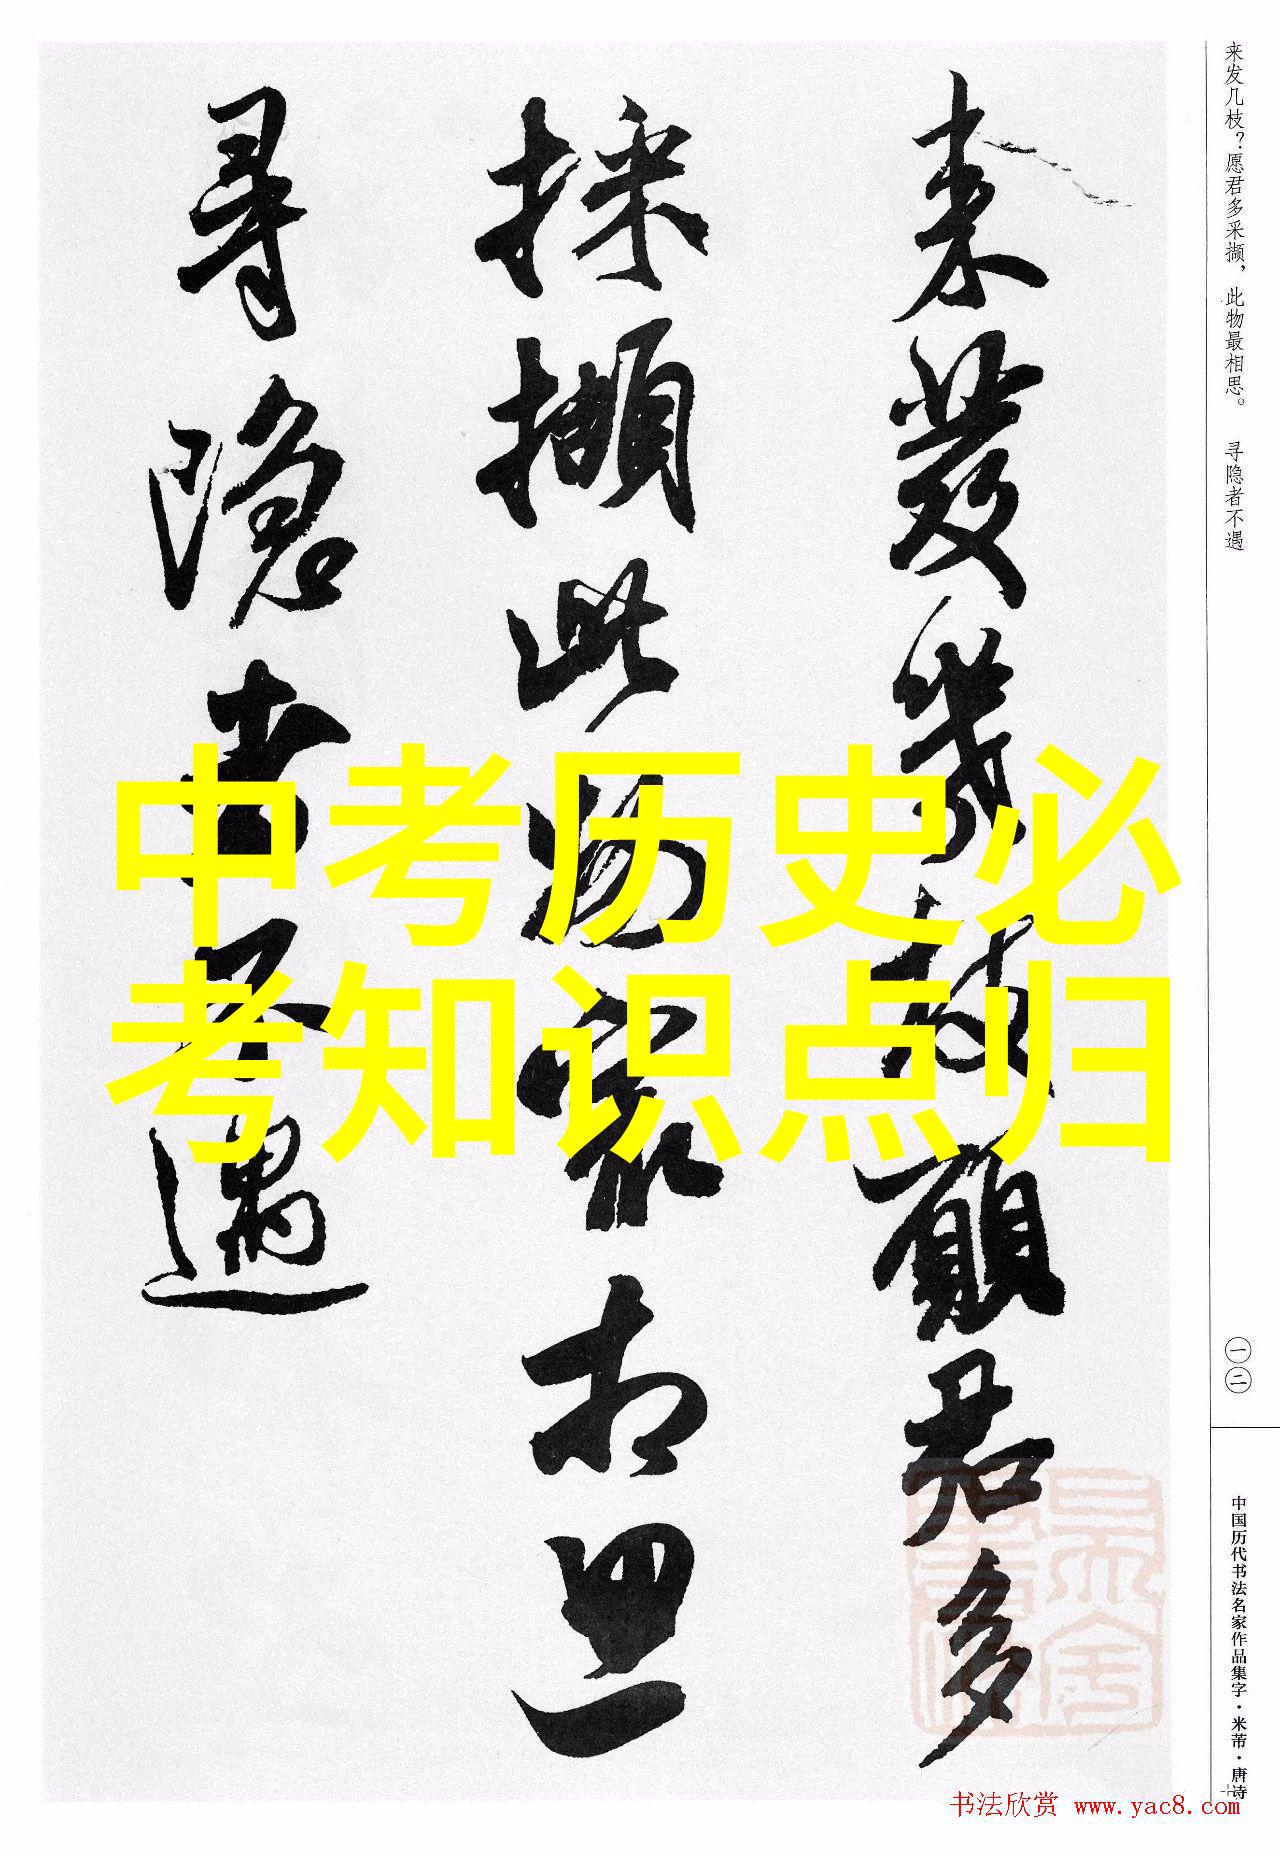 来发几枝？愿君多采撷，此物最相思。　寻隐者不遇
来發幾枝願君多
採撷此物最相思
尋隐者不遇
中考历史必
考知识点归
一二
中国历代书法名家作品集字·米芾·唐诗
书法欣赏 www.yac8.com